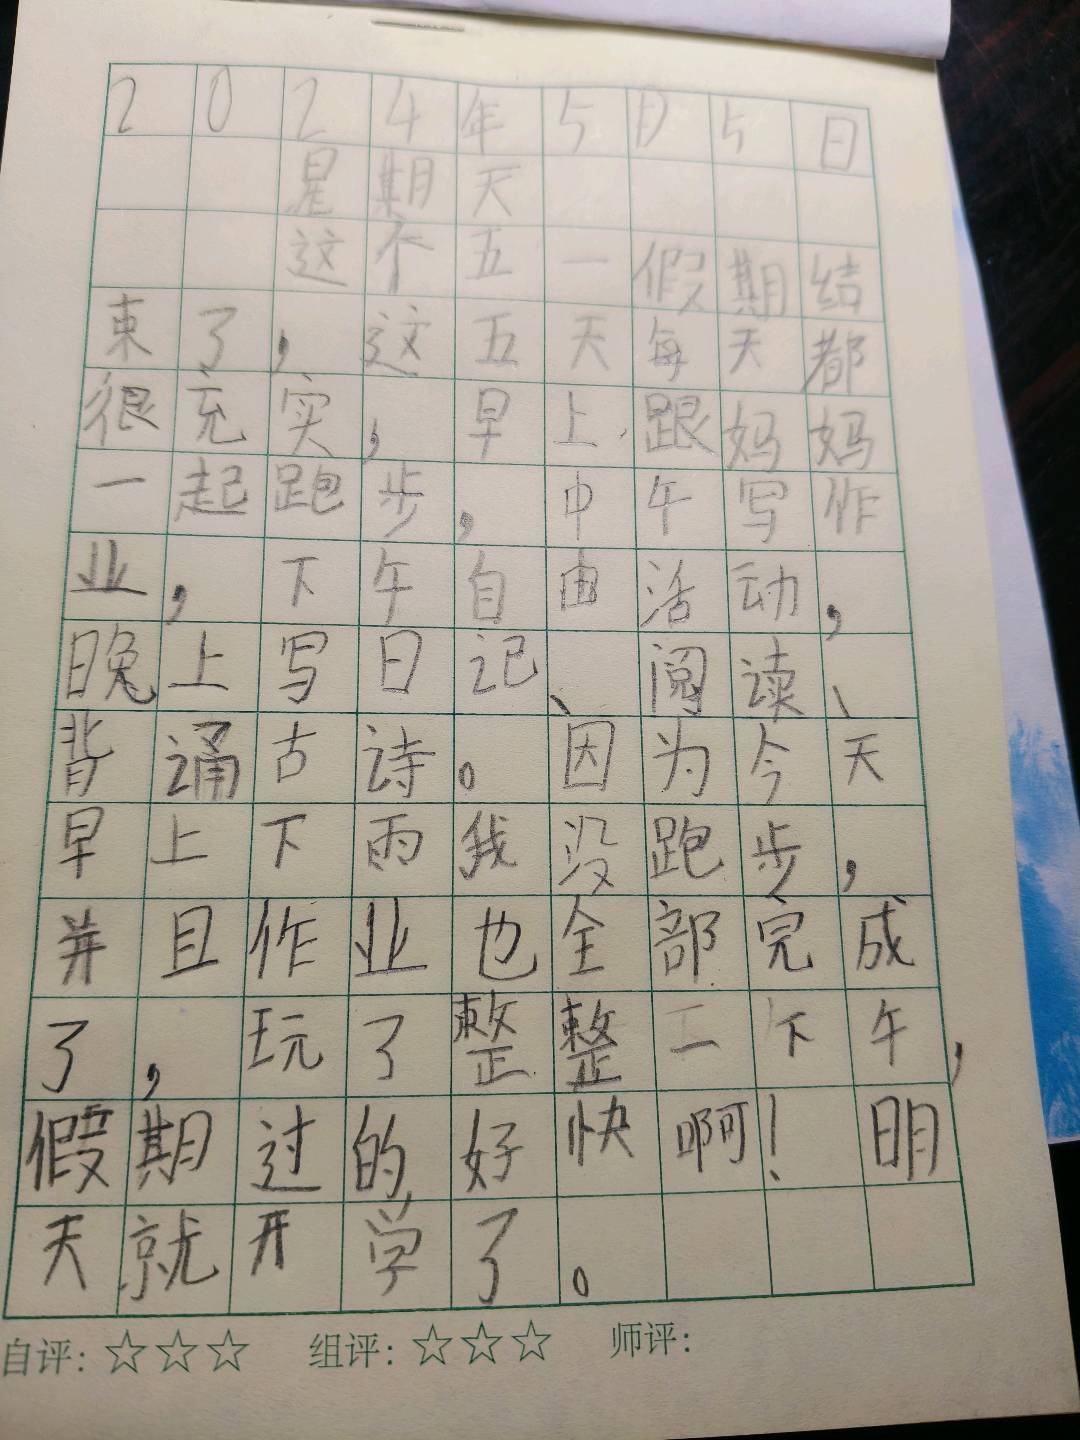 2024年5月5日
星期天
这个五一假期结
束了，这五天每天都
很充实，早上跟妈妈
一起跑步，中午写作
业，下午自由活动，
晚上写日记、阅读、
背诵古诗。因为今天
早上下雨我没跑步，
并且作业也全部完成
了，玩了整整一下午，
假期过的好快啊！明
天就开学了。
自评：☆☆☆ 组评：☆☆☆ 师评：